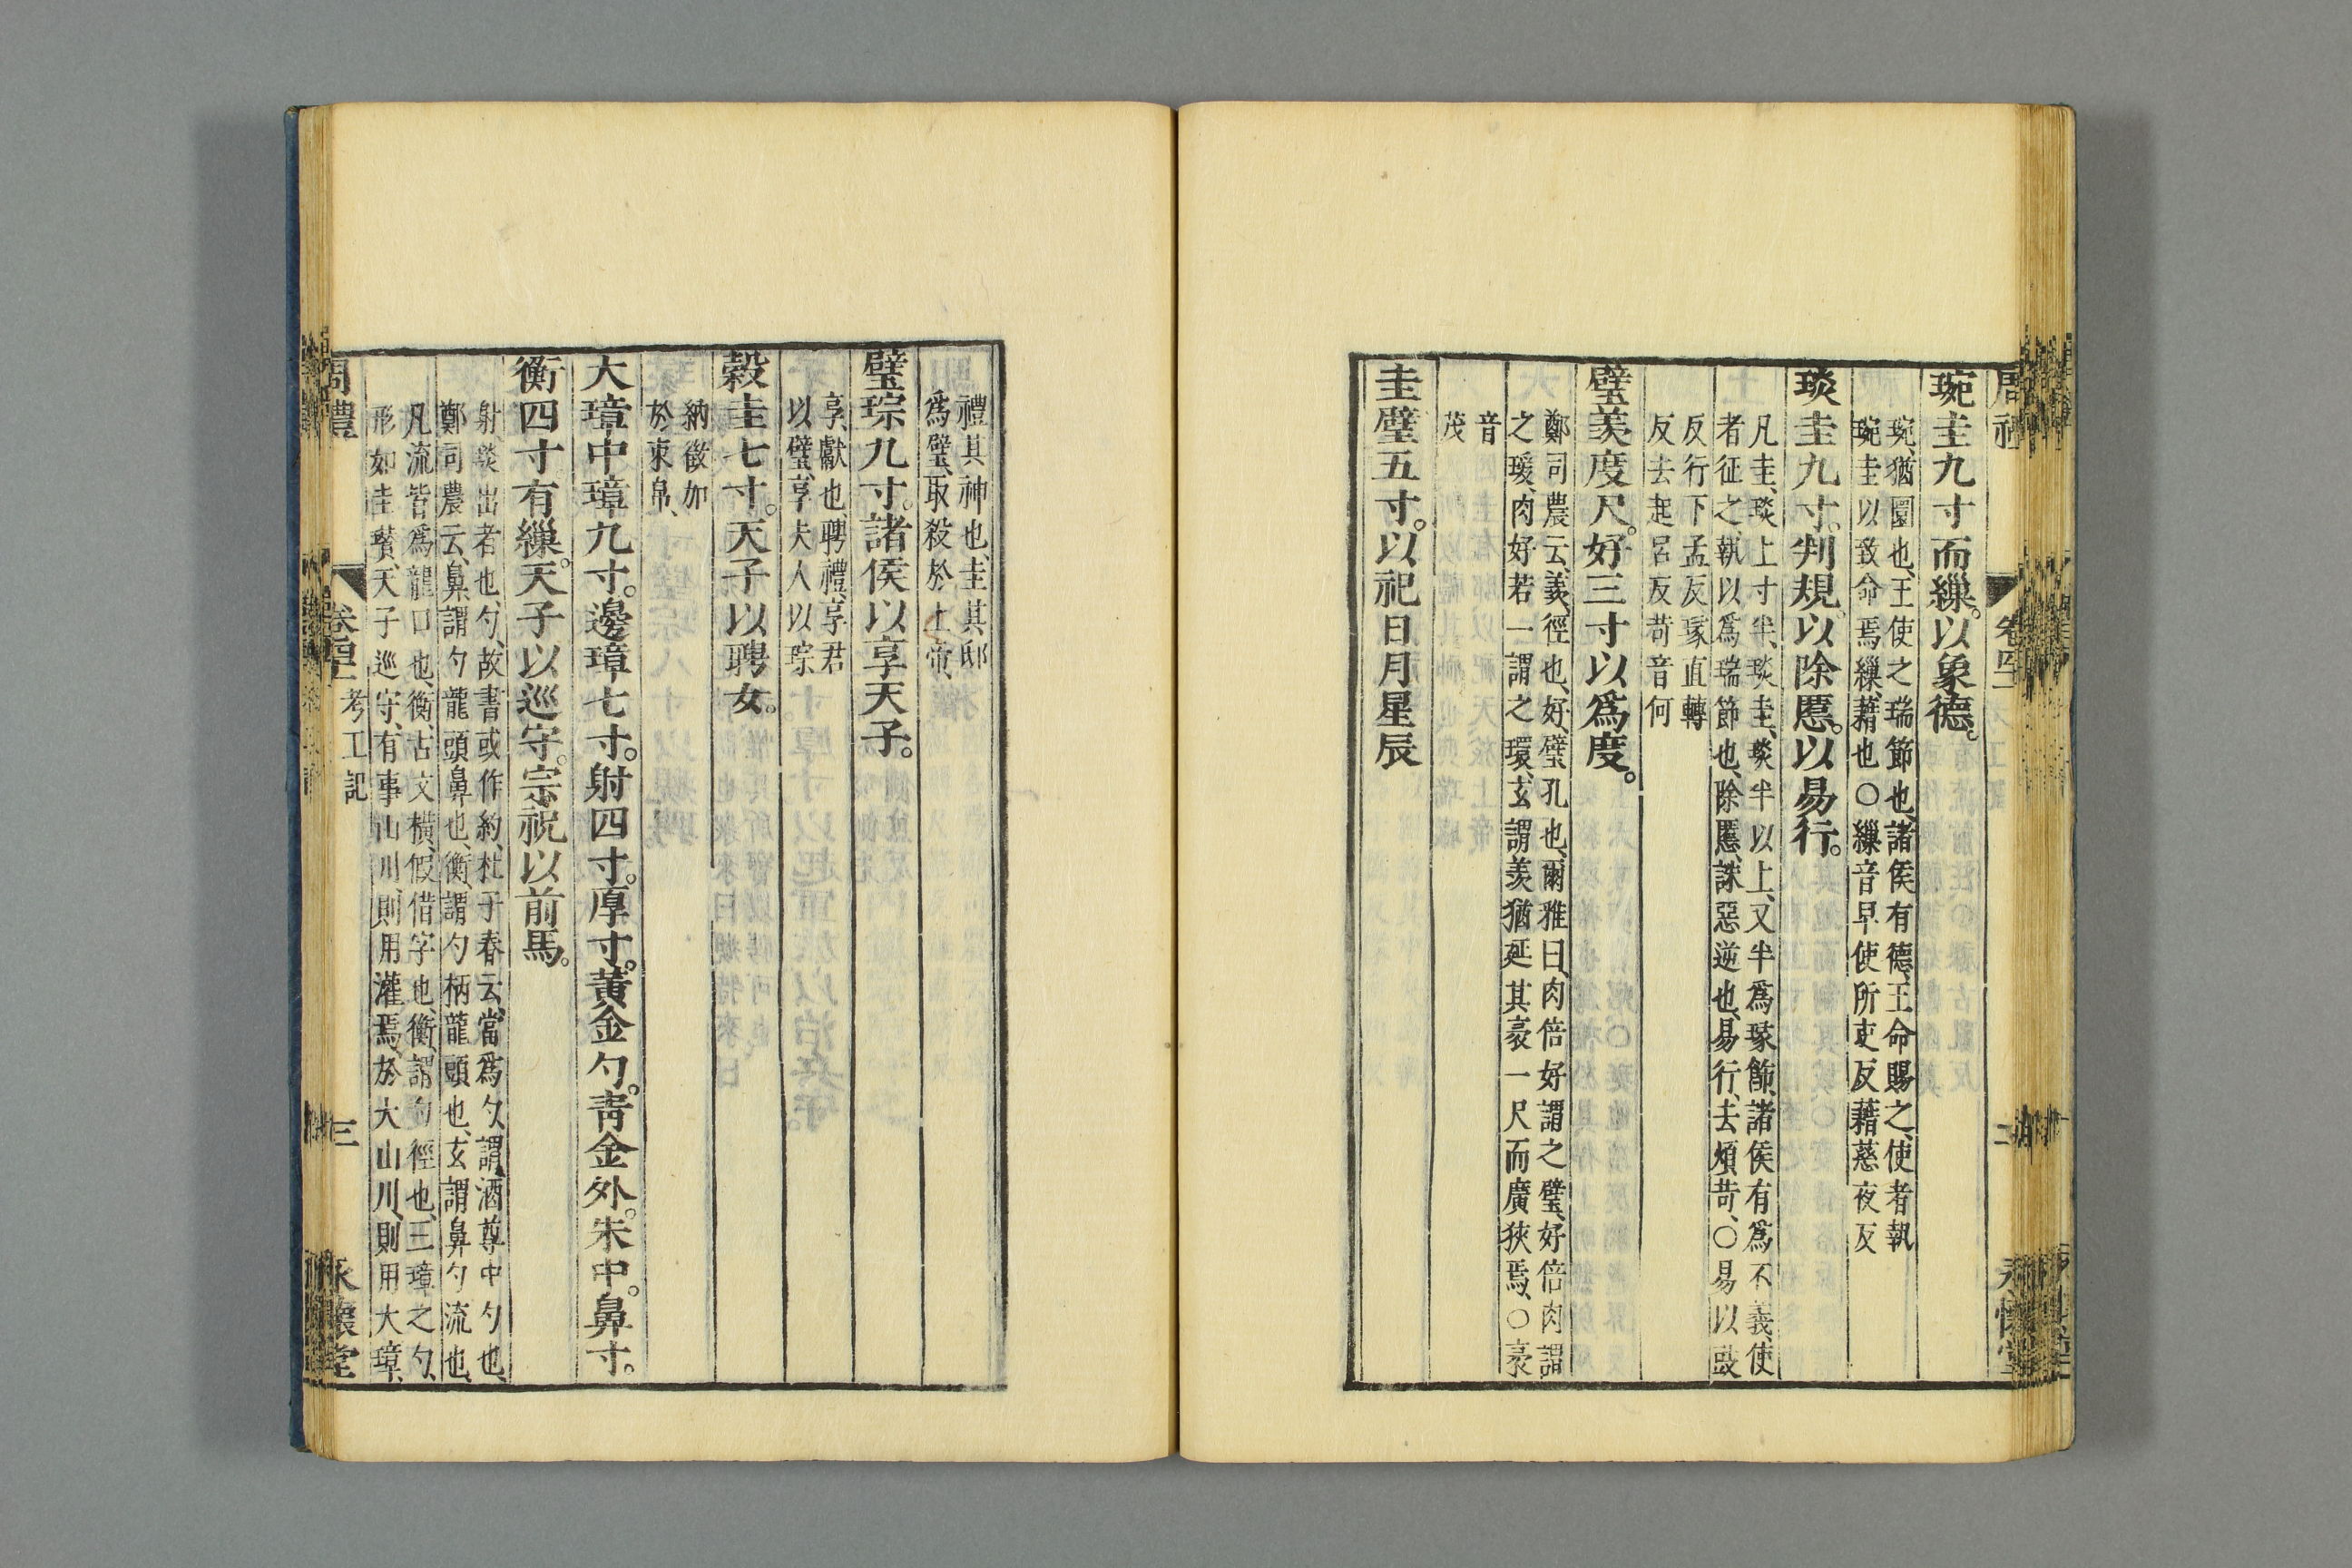 琬圭九寸而繅。以象德。
琬、猶圜也、王使之瑞節也、諸侯有德、王命賜之、使者執
琬圭以致命焉、繅、藉也〇繅音早使所吏反藉慈夜反
琰圭九寸、判規。以除慝。以易行。
凡圭、琰上寸半、琰圭、琰半以上、又半爲瑑飾、諸侯有爲不義、使
者征之、執以爲瑞節也、除慝、誅惡逆也、易行、去煩苛、〇易以豉
反行下孟反瑑直轉
反去起呂反苛音何
璧羨度尺。好三寸以爲度。
鄭司農云、羨、徑也、好、璧孔也、爾雅曰、肉倍好謂之璧、好倍肉謂
之瑗、肉好若一謂之環、玄謂羨猶延其袤一尺而廣狹焉、〇袤
音
茂
圭璧五寸。以祀日月星辰
禮其神也、圭其邸
爲璧、取殺於上帝、
璧琮九寸。諸侯以享天子。
享、獻也、聘禮、享君
以璧、享夫人以琮
穀圭七寸。天子以聘女。
納徵加
於束帛、
大璋中璋九寸。邊璋七寸。射四寸。厚寸。黃金勺。青金外。朱中。鼻寸。
衡四寸有繅。天子以巡守。宗祝以前馬。
射、琰出者也、勺、故書或作約、杜子春云、當爲勺、謂酒尊中勺也、
鄭司農云、鼻、謂勺龍頭鼻也、衡、謂勺柄龍頭也、玄謂鼻勺流也、
凡流皆爲龍口也、衡、古文橫、假借字也、衡、謂勺徑也、三璋之勺、
形如圭瓚、天子巡守、有事山川、則用灌焉、於大山川、則用大璋、
周禮 卷四十一 考工記 三 永懷堂